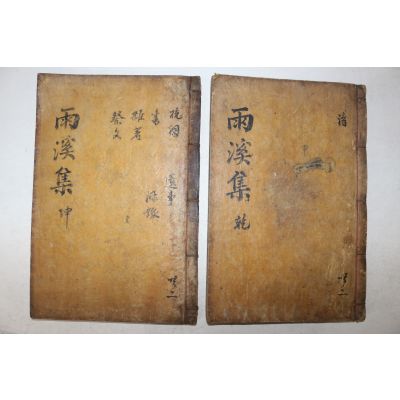 雨溪集 乾
詩
共二
雨溪集 坤
挽詞
書
雜著
祭文
遺事
附錄
共二